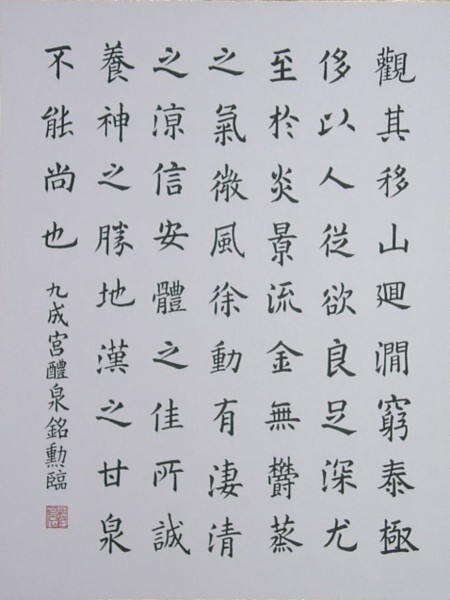 觀其移山廻澗窮泰極
侈以人從欲良足深尤
至於炎景流金無鬱蒸
之氣微風徐動有淒清
之涼信安體之佳所誠
養神之勝地漢之甘泉
不能尚也
九成宮醴泉銘勳臨